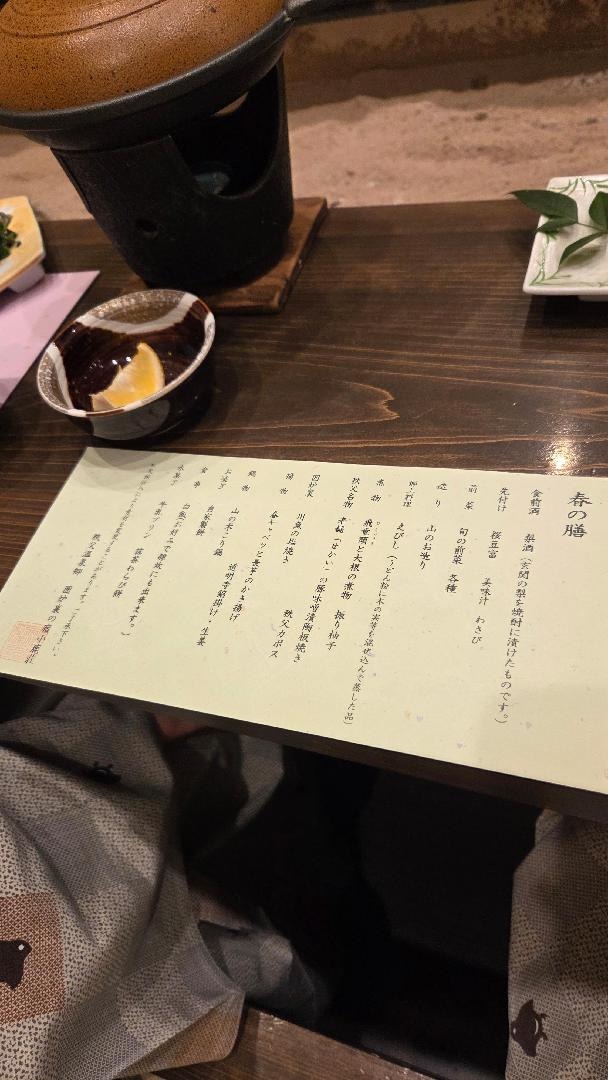 春の膳
食前酒　梨酒（玄関の梨を焼酎に漬けたものです。）
先付け　桜豆富　美味汁　わさび
前菜　旬の前菜　各種
造り　山のお造り
郷土料理　えびし（うどん粉に木の実等を混ぜ込んで蒸した品）
煮物　飛竜頭と大根の煮物　振り柚子
秩父名物　の豚味噌漬陶板焼き
囲炉裏　川魚の塩焼き　秩父カボス
揚物　春キャベツと長芋のかき揚げ
鍋物　山の木こり鍋
お凌ぎ　自家製餅　透明寺餡掛け・生姜
食事　白飯（お好みで雑炊にも出来ます。）
水菓子　牛乳プリン　抹茶わらび餅
秩父温泉郷　囲炉裏の宿　小鹿荘